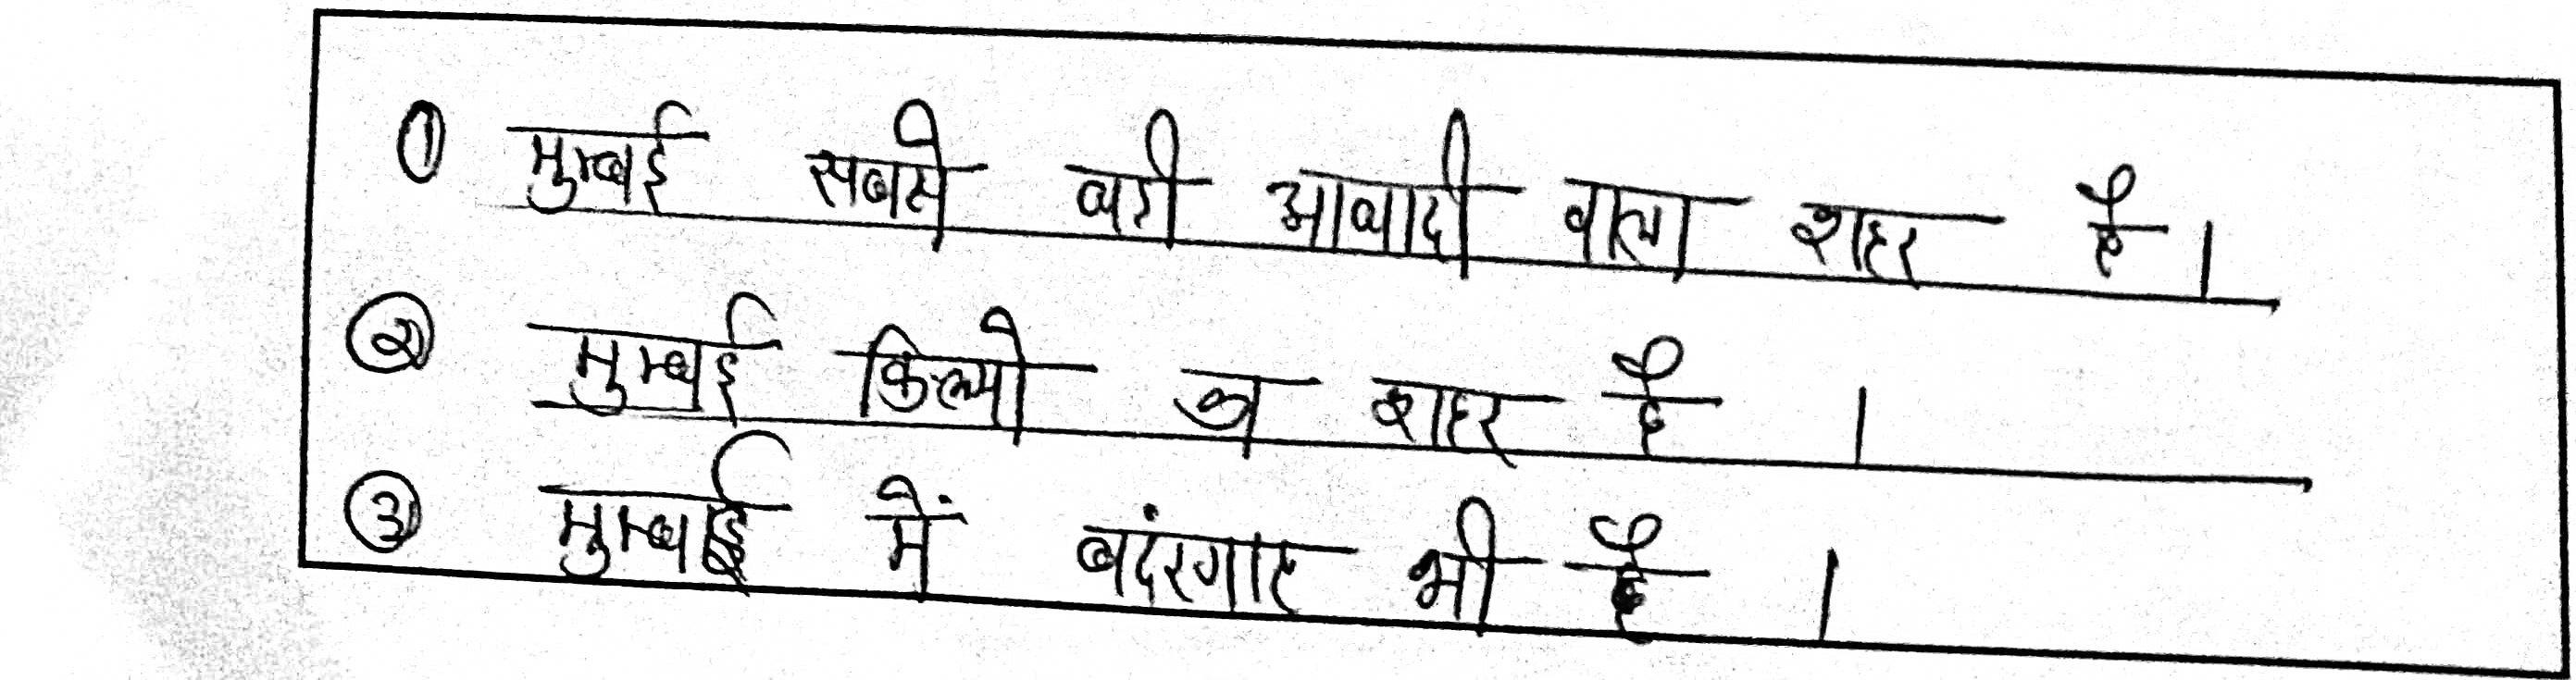 ① मुम्बई सबसे बरी आबादी वाला शहर है ।
② मुम्बई फिल्मो का शहर है ।
③ मुम्बई में बदंरगाह भी है ।